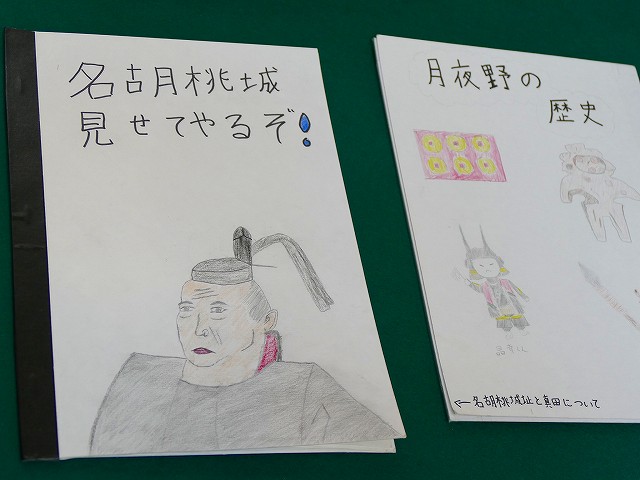 名胡桃城
見せてやるぞ!
月夜野の
歴史
←名胡桃城址と真田について